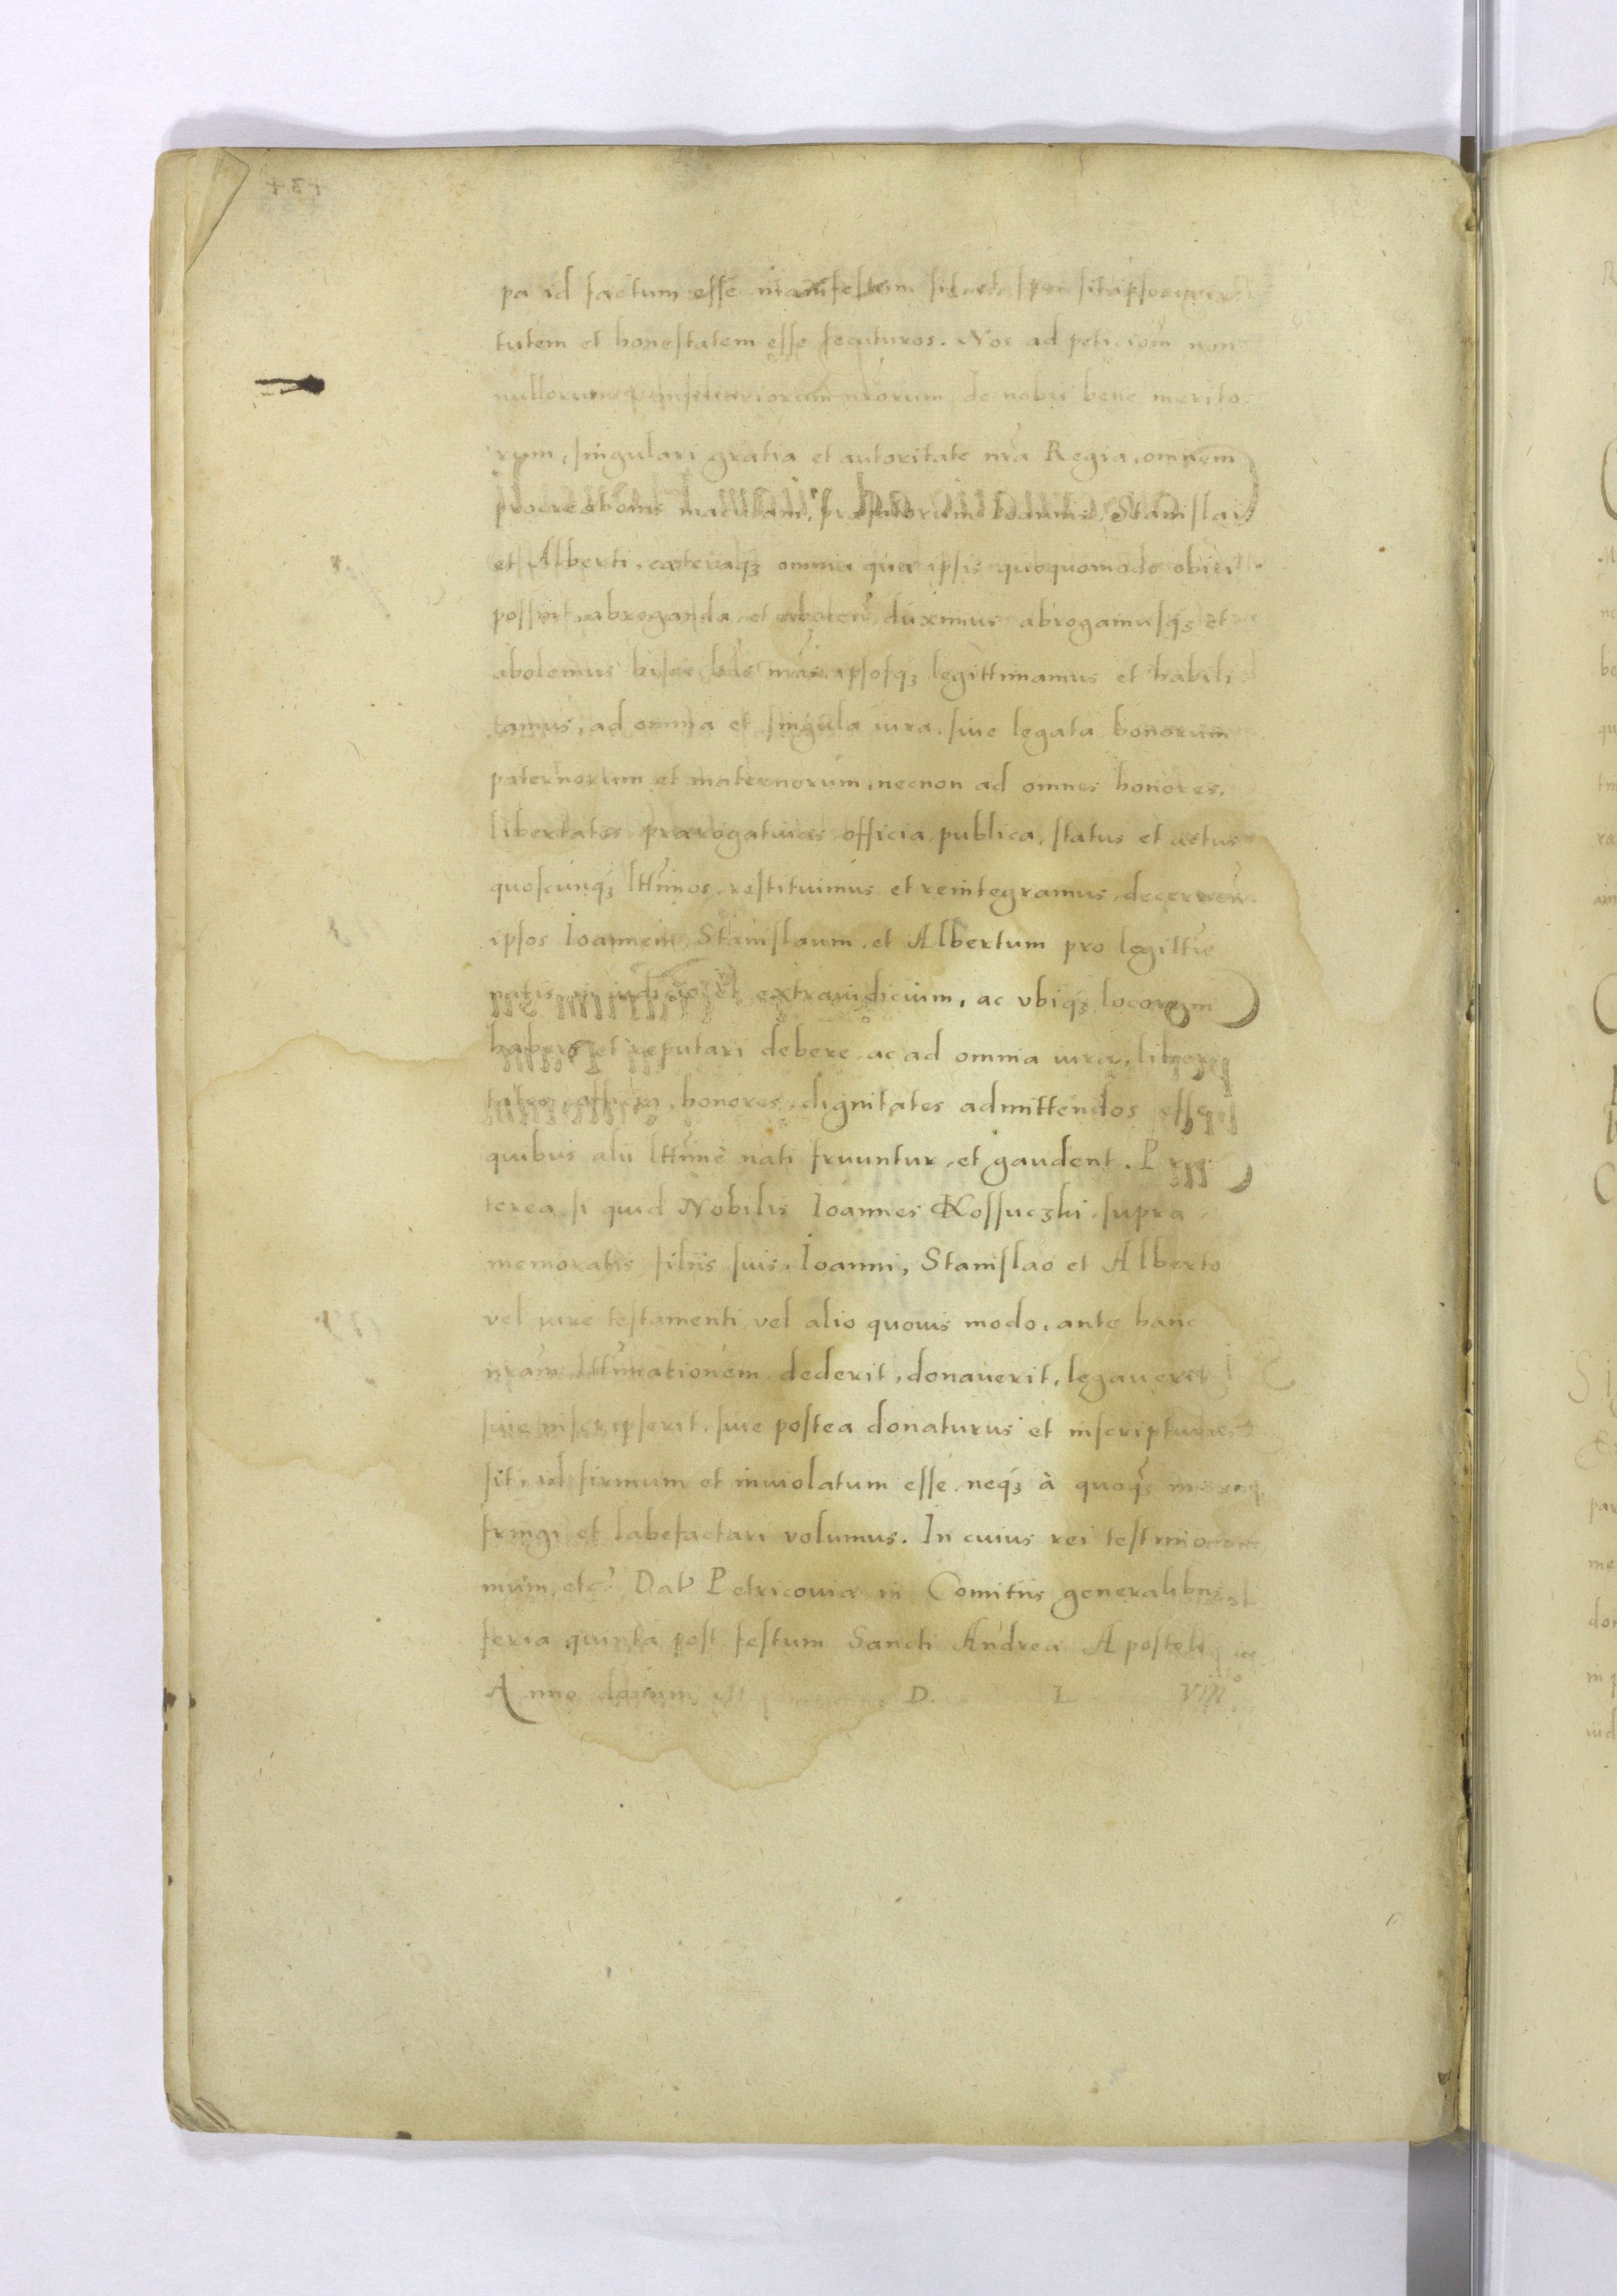 pa id factum esse manifestum sit et spes sit ipsos vir
tutem et honestatem esse secuturos. Nos ad peticiom non
nullorum consiliariorum nrorum de nobis bene merito
rum, singulari gratia et autoritate nra Regia, omnem
procreationis maculam, præfatorum Ioannis, Stanislai
et Alberti, cæteraqȝ omnia quæ ipsis quoquomodo obiici
possent abroganda et abolen duximus abrogamusqȝ et
abolemus hisce lris nris ipsosqȝ legittimamus et habili
tamus, ad omnia et singula iura, siue legata bonorum
paternorum et maternorum, necnon ad omnes honores,
libertates prærogatiuas officia publica, status et actus
quoscunqȝ lttimos restituimus et reintegramus, decernen
ipsos Ioannem Stanislaum et Albertum pro legittie
natis in iudicio et extraiudicium, ac vbiqȝ locorum
haberi et reputari debere ac ad omnia iura, liber
tates, officia, honores, dignitates admittendos esse
quibus alii lttime nati fruuntur et gaudent. Præ
terea si quid Nobilis Ioannes Kossuczki supra
memoratis filiis suis, Ioanni, Stanislao et Alberto
vel iure testamenti vel alio quouis modo, ante hanc
nram lttimationem dederit, donauerit, legauerit
siue inscripserit, siue postea donaturus et inscripturus
sit, id firmum et inuiolatum esse neqȝ à quoqȝ
fringi et labefactari volumus. In cuius rei testimo
nium etc. Dat Petricouiæ in Comitiis generalibus
feria quinta post festum Sancti Andreæ Apostoli
Anno domini M D. L viii°